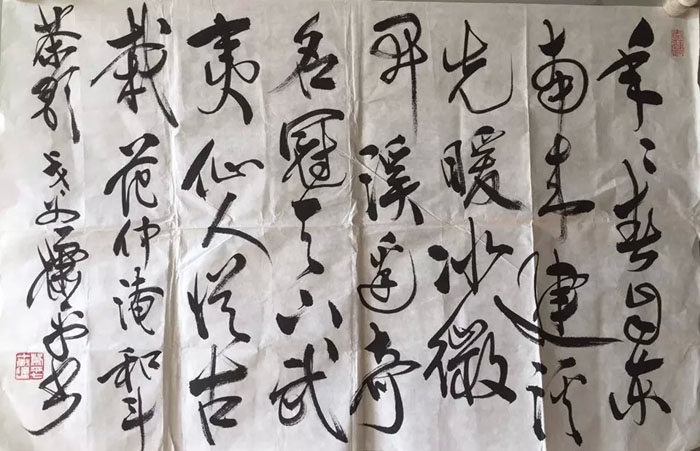 年々春自东
南来建溪
先暖冰微
开溪边奇
名冠天下武
夷仙人从古
栽范仲淹和斗
茶歌书